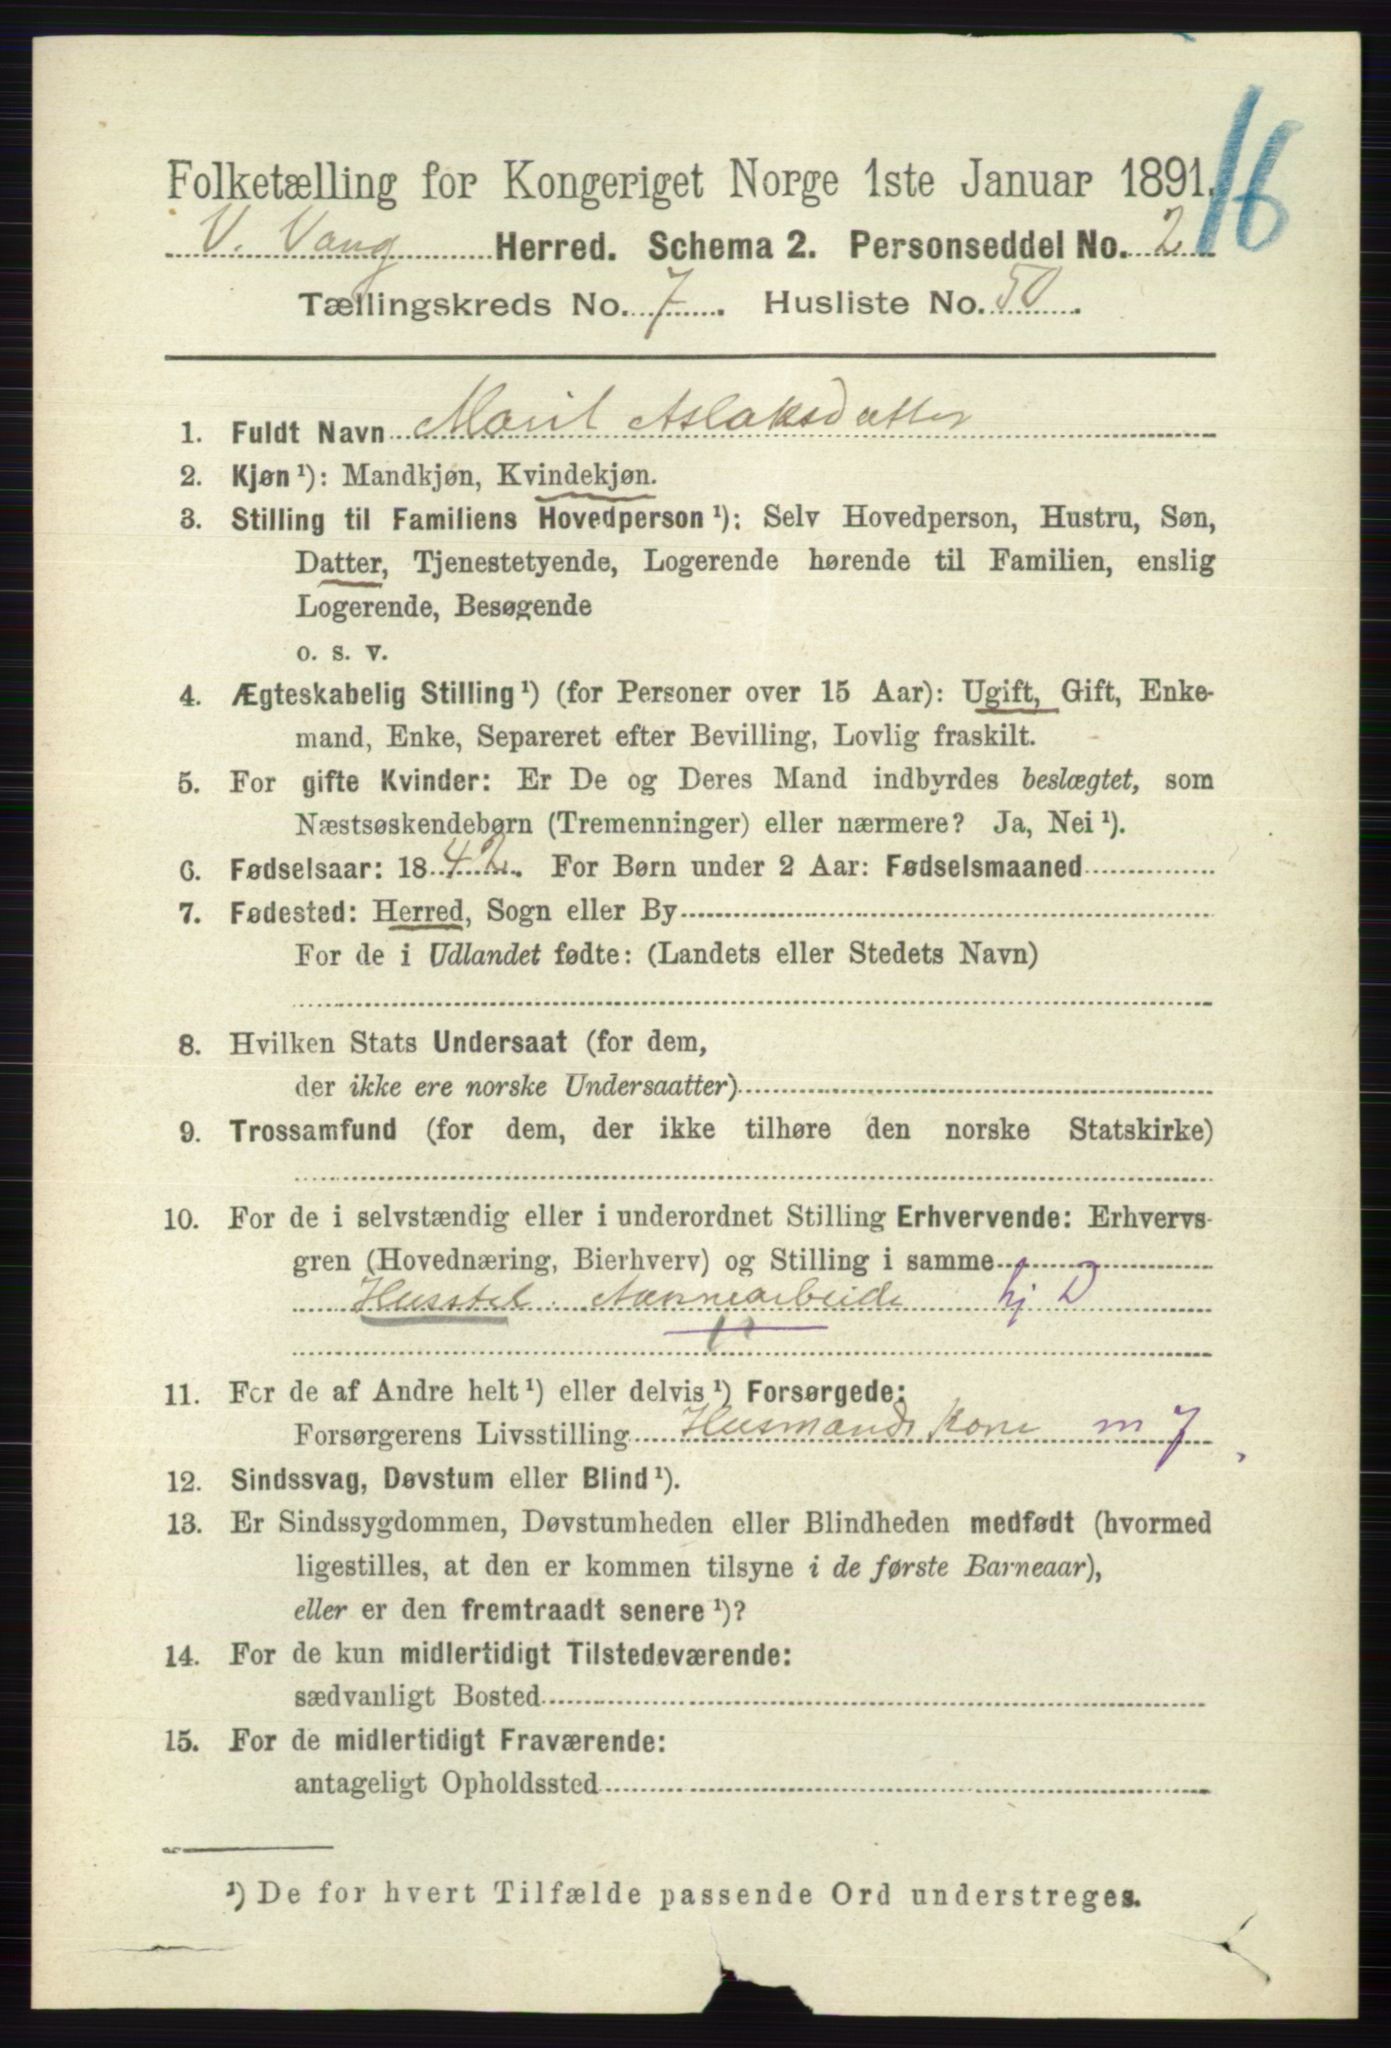 16
Folketælling for Kongeriget Norge 1ste Januar 1891.
V. Vang Herred. Schema 2. Personseddel No. 2
Tællingskreds No. 7. Husliste No. 50.
1. Fuldt Navn Marit Aslaksdatter
2. Kjøn¹): Mandkjøn, Kvindekjøn.
3. Stilling til Familiens Hovedperson¹): Selv Hovedperson, Hustru, Søn,
Datter, Tjenestetyende, Logerende hørende til Familien, enslig
Logerende, Besøgende
o. s. v.
4. Ægteskabelig Stilling¹) (for Personer over 15 Aar): Ugift, Gift, Enke-
mand, Enke, Separeret efter Bevilling, Lovlig fraskilt.
5. For gifte Kvinder: Er De og Deres Mand indbyrdes beslægtet, som
Næstsøskendebørn (Tremenninger) eller nærmere? Ja, Nei¹).
6. Fødselsaar: 1842. For Børn under 2 Aar: Fødselsmaaned
7. Fødested: Herred, Sogn eller By
For de i Udlandet fødte: (Landets eller Stedets Navn)
8. Hvilken Stats Undersaat (for dem,
der ikke ere norske Undersaatter)
9. Trossamfund (for dem, der ikke tilhøre den norske Statskirke)
10. For de i selvstændig eller i underordnet Stilling Erhvervende: Erhvervs-
gren (Hovednæring, Bierhverv) og Stilling i samme
Husstel hj D
11. For de af Andre helt¹) eller delvis¹) Forsørgede:
Forsørgerens Livsstilling Husmands Kone m 7
12. Sindssvag, Døvstum eller Blind¹).
13. Er Sindssygdommen, Døvstumheden eller Blindheden medfødt (hvormed
ligestilles, at den er kommen tilsyne i de første Barneaar),
eller er den fremtraadt senere¹)?
14. For de kun midlertidigt Tilstedeværende:
sædvanligt Bosted
15. For de midlertidigt Fraværende:
antageligt Opholdssted
¹) De for hvert Tilfælde passende Ord understreges.